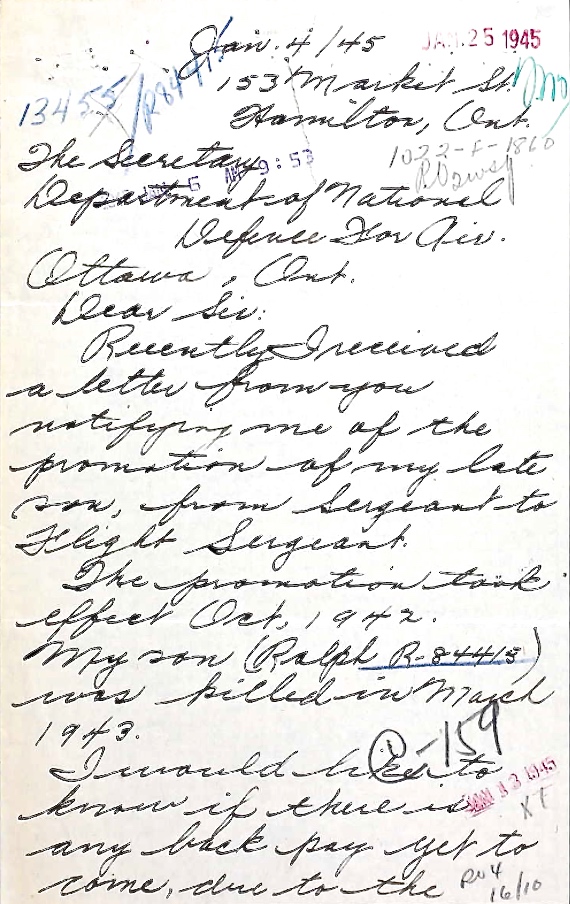 Jan. 4/45
JAN. 25 1945
153 Market St.
13455/R84413
Hamilton, Ont.
1022-F-1860
The Secretary
9:53
Department of National
Defence For Air.
Ottawa, Ont.
Dear Sir:
Recently I received
a letter from you
notifying me of the
promotion of my late
son, from Sergeant to
Flight Sergeant.
The promotion took
effect Oct, 1942.
My son (Ralph R-84413)
was killed in March
1943.
-159
I would like to
know if there is
any back pay yet to
come, due to the
16/10